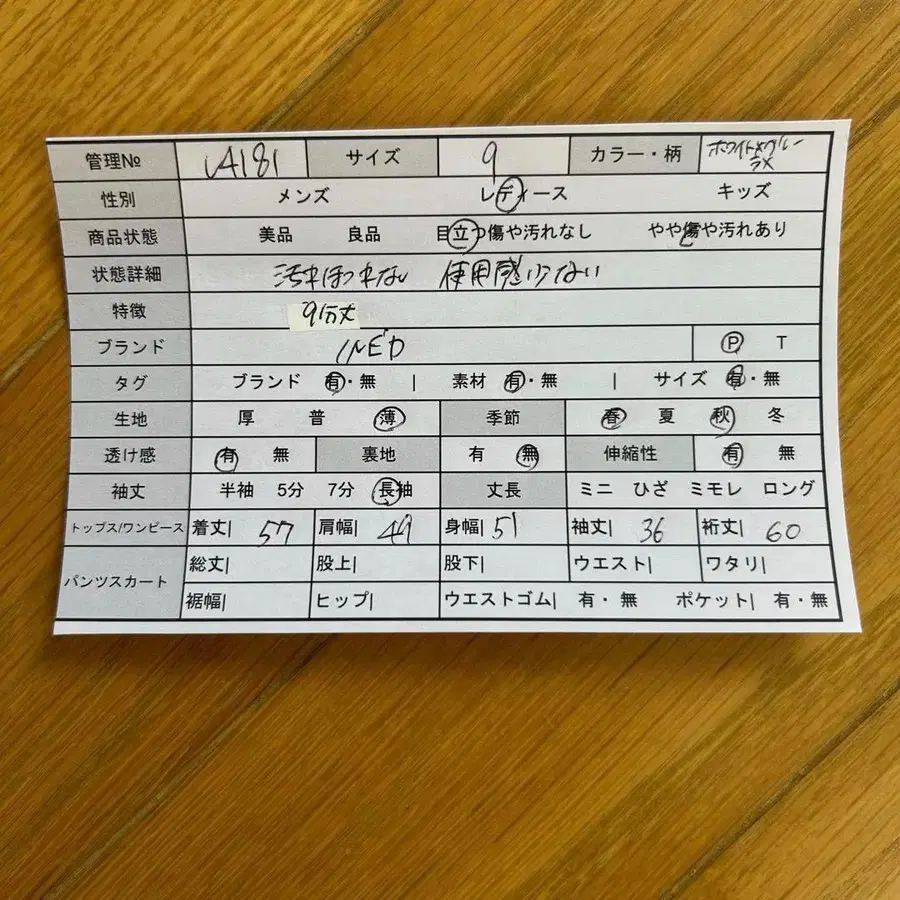 管理№ A181 サイズ 9 カラー・柄 ホワイト×ブルー ラメ
性別 メンズ レディース キッズ
商品状態 美品 良品 目立つ傷や汚れなし やや傷や汚れあり
状態詳細 汚れほつれなし 使用感少ない
特徴 9分丈
ブランド INED P T
タグ ブランド 有・無 | 素材 有・無 | サイズ 有・無
生地 厚 普 薄 季節 春 夏 秋 冬
透け感 有 無 裏地 有 無 伸縮性 有 無
袖丈 半袖 5分 7分 長袖 丈長 ミニ ひざ ミモレ ロング
トップス/ワンピース 着丈| 57 肩幅| 49 身幅| 51 袖丈| 36 裄丈| 60
パンツスカート 総丈| 股上| 股下| ウエスト| ワタリ|
裾幅| ヒップ| ウエストゴム| 有・無 ポケット| 有・無